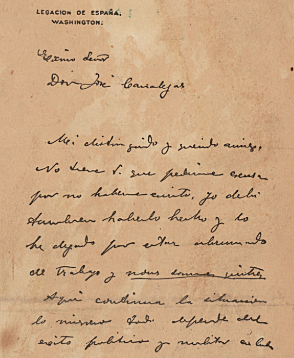 LEGACION DE ESPAÑA.
WASHINGTON.
Exmo Señor
Don José Canalejas
Mi distinguido y querido amigo,
No tiene V. que pedirme excusa
por no haberme escrito, yo debi
tambien haberlo hecho y lo
he dejado por estar abrumado
de trabajo y
Aqui continua la situacion
lo mismo todo depende del
exito politico y militar en